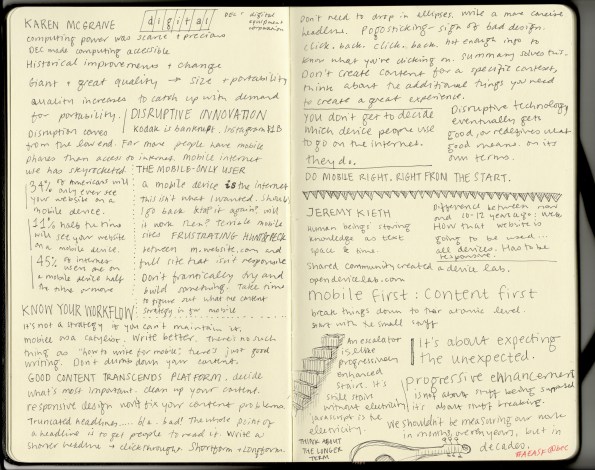 KAREN MCGRANE
digital
DEC = digital equipment corporation
computing power was scarce + precious
DEC made computing accessible
Historical improvements + change
Giant + great quality → size + portability
quality increases to catch up with demand
for portability. DISRUPTIVE INNOVATION
Disruption comes
Kodak is bankrupt. Instagram $1B
from the low end. Far more people have mobile
phones than access to internet. Mobile internet
use has skyrocketed
34% of Americans will
only ever see
your website on
a mobile device.
11% half the time
will see your website
on a mobile device.
45% of internet
users are on
a mobile device half
the time or more
THE MOBILE-ONLY USER
a mobile device is the internet
This isn't what I wanted. Should
I go back
it again? will
it work then? Terrible mobile
site! FRUSTRATING
between m.website.com and
full site that isn't responsive
Don't frantically try and
build something. Take time
to figure out what the content
strategy is for mobile
KNOW YOUR WORKFLOW
It's not a strategy if you can't maintain it.
mobile as a catalyst. Write better. There's no such
thing as "how to write for mobile" there's just good
writing. Don't dumb down your content.
GOOD CONTENT TRANSCENDS PLATFORM. decide
what's most important. clean up your content.
responsive design won't fix your content problems
Truncated headlines..... are bad! The whole point of
a headline is to get people to read it. Write a
shorter headline → clickthrough. Shortform + Longform.
Don't need to drop in ellipses. Write a more concise
headline. Pogosticking = sign of bad design.
click. back. click. back. not enough info to
know what you're clicking on. Summary solves this.
Don't create content for a specific context,
think about the additional things you need
to create a great experience.
You don't get to decide
which device people use
to go on the internet.
they do.
Disruptive technology
eventually gets
good, or redefines what
good means. on its
own terms.
DO MOBILE RIGHT. RIGHT FROM THE START.
JEREMY KIETH
Human beings storing
knowledge as beat
space & time.
Difference between now
and 10-12 years ago: web.
How that website is
going to be used...
all devices. Has to be
responsive.
Shared community created a device lab.
opendevicelab.com
mobile first: Content first
break things down to their atomic level.
start with the small stuff
An escalator
is like
progressively
enhanced
stairs. It's
still stairs
without electricity
javascript is the
electricity.
It's about expecting
the unexpected.
progressive enhancement
is not about stuff being supposed
it's about stuff breaking.
We shouldn't be measuring our work
in months or even years, but in
decades.
THINK ABOUT
THE LONGER
TERM